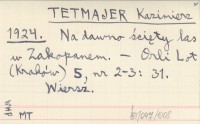 TETMAJER Kazimierz
1924. Na dawno ścięty las
w Zakopanem. — Orli Lot
(Kraków) 5, nr 2-3: 31.
Wiersz.
MT